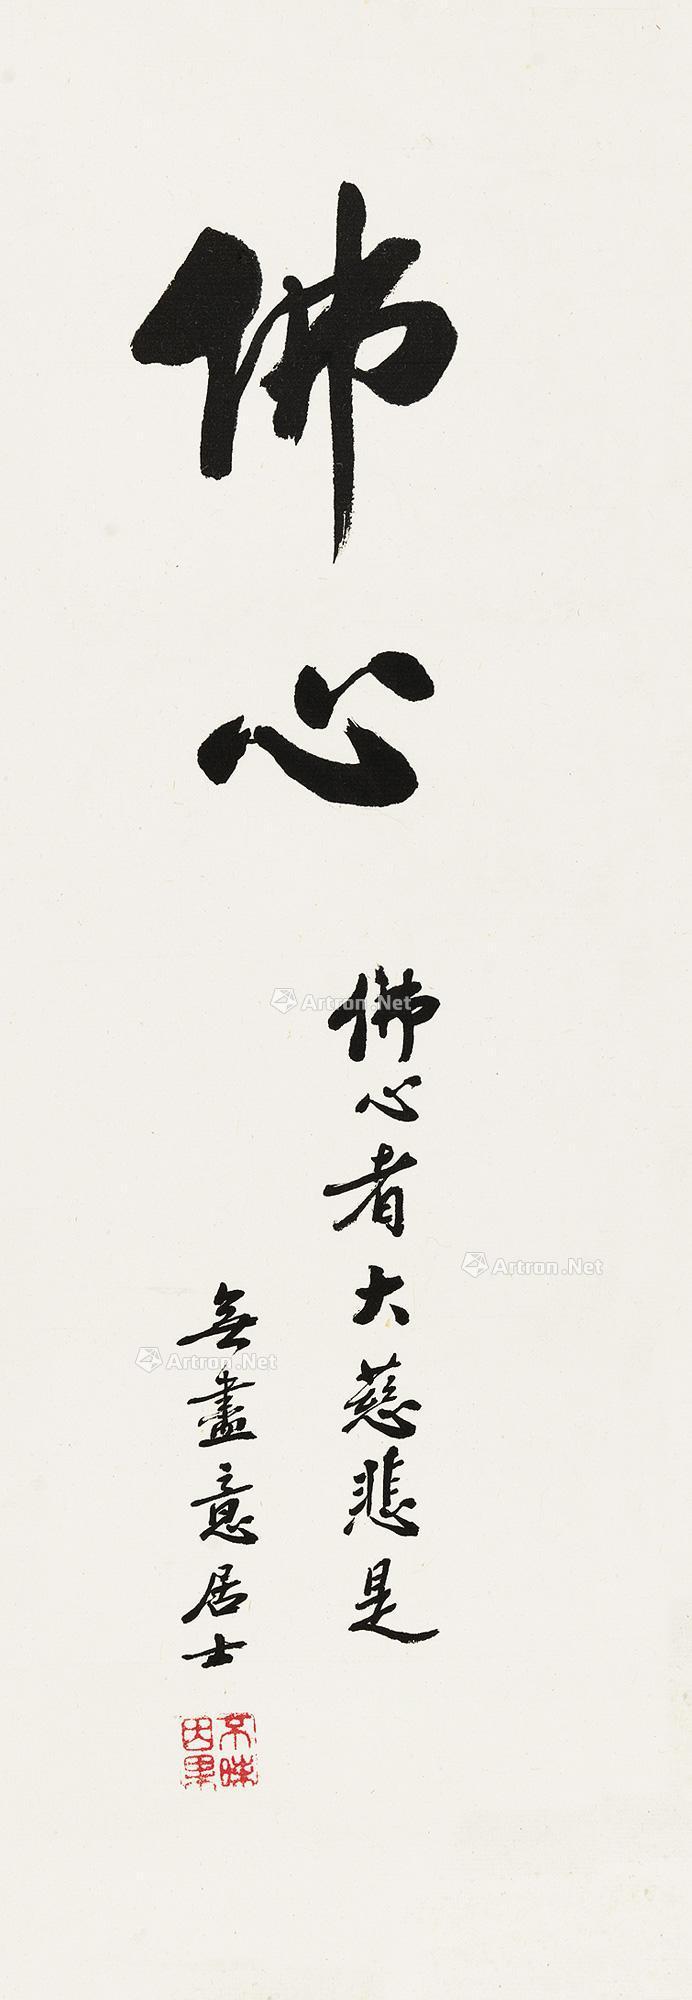 佛心
佛心者大慈悲是
無盡意居士
不昧因果
Artron.Net
Artron.Net
Artron.Net